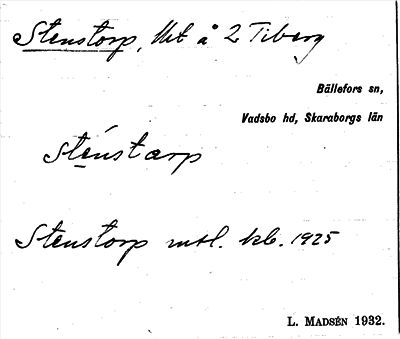 Stenstorp, Ut å 2 Tiberg
Bällefors sn,
Vadsbo hd, Skaraborgs län
sténstærp
Stenstorp mtl. kb. 1925
L. MADSÉN 1932.